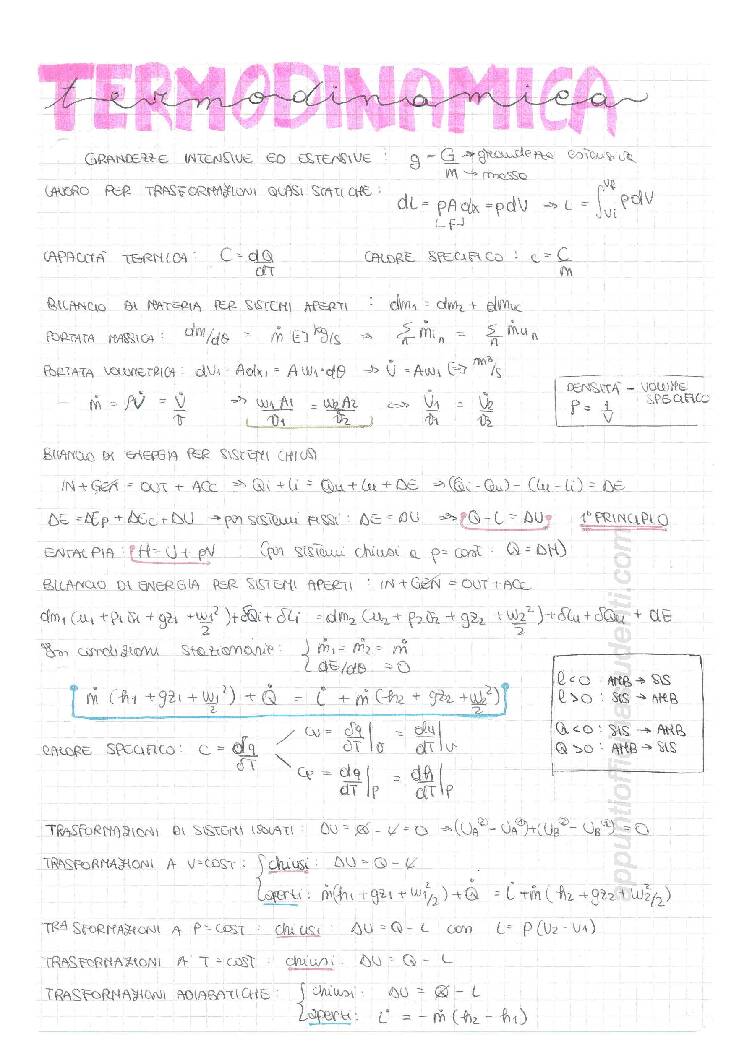 TERMODINAMICA
termodinamica
GRANDEZZE INTENSIVE ED ESTENSIVE : g = G → grandezza estensiva
m → massa
LAVORO PER TRASFORMAZIONI QUASI STATICHE : dL = pAdx = pdV ⇒ L = ∫_{Vi}^{Vf} pdV
[F]
CAPACITÀ TERMICA : C = dQ/dT CALORE SPECIFICO : c = C/m
BILANCIO DI MATERIA PER SISTEMI APERTI : dm1 = dm2 + dmac
PORTATA MASSICA : dm/dθ = ṁ [=] kg/s ⇒ Σ_n ṁi_n = Σ_n ṁu_n
PORTATA VOLUMETRICA : dV1 = Adx1 = Aw1·dθ ⇒ V̇ = Aw1 [=] m³/s
ṁ = ρV̇ = V̇/v ⇒ w1A1/v1 = w2A2/v2 ⇔ V̇1/v1 = V̇2/v2
DENSITÀ - VOLUME SPECIFICO
ρ = 1/v
BILANCIO DI ENERGIA PER SISTEMI CHIUSI
IN + GEN = OUT + ACC ⇒ Qi + Li = Qu + Lu + ΔE ⇒ (Qi - Qu) - (Lu - Li) = ΔE
ΔE = ΔEp + ΔEc + ΔU → per sistemi fissi : ΔE = ΔU ⇒ Q - L = ΔU 1° PRINCIPIO
ENTALPIA : H = U + pV (per sistemi chiusi a p = cost · Q = ΔH)
BILANCIO DI ENERGIA PER SISTEMI APERTI : IN + GEN = OUT + ACC
dm1 (u1 + p1v1 + gz1 + w1²/2) + δQi + δLi = dm2 (u2 + p2v2 + gz2 + w2²/2) + δLu + δQu + dE
In condizioni stazionarie : { ṁ1 = ṁ2 = ṁ
dE/dθ = 0
ṁ (h1 + gz1 + w1²/2) + Q̇ = L̇ + ṁ (h2 + gz2 + w2²/2)
L<0 AMB → SIS
L>0 : SIS → AMB
Q<0 : SIS → AMB
Q>0 : AMB → SIS
CALORE SPECIFICO : c = dq/δT
cv = δq/δT|v = du/dT|v
cp = dq/dT|p = dh/dT|p
TRASFORMAZIONI DI SISTEMI ISOLATI : ΔU = Q - L = 0 ⇒ (UA⁽²⁾ - UA⁽¹⁾) + (UB⁽²⁾ - UB⁽¹⁾) = 0
TRASFORMAZIONI A V=COST : { chiusi : ΔU = Q - L
aperti : ṁ(h1 + gz1 + w1²/2) + Q̇ = L̇ + ṁ (h2 + gz2 + w2²/2)
TRASFORMAZIONI A P=COST : chiusi : ΔU = Q - L con L = P (V2 - V1)
TRASFORMAZIONI A T=COST : chiusi : ΔU = Q - L
TRASFORMAZIONI ADIABATICHE : { chiusi : ΔU = Q - L
aperti : L̇ = - ṁ (h2 - h1)